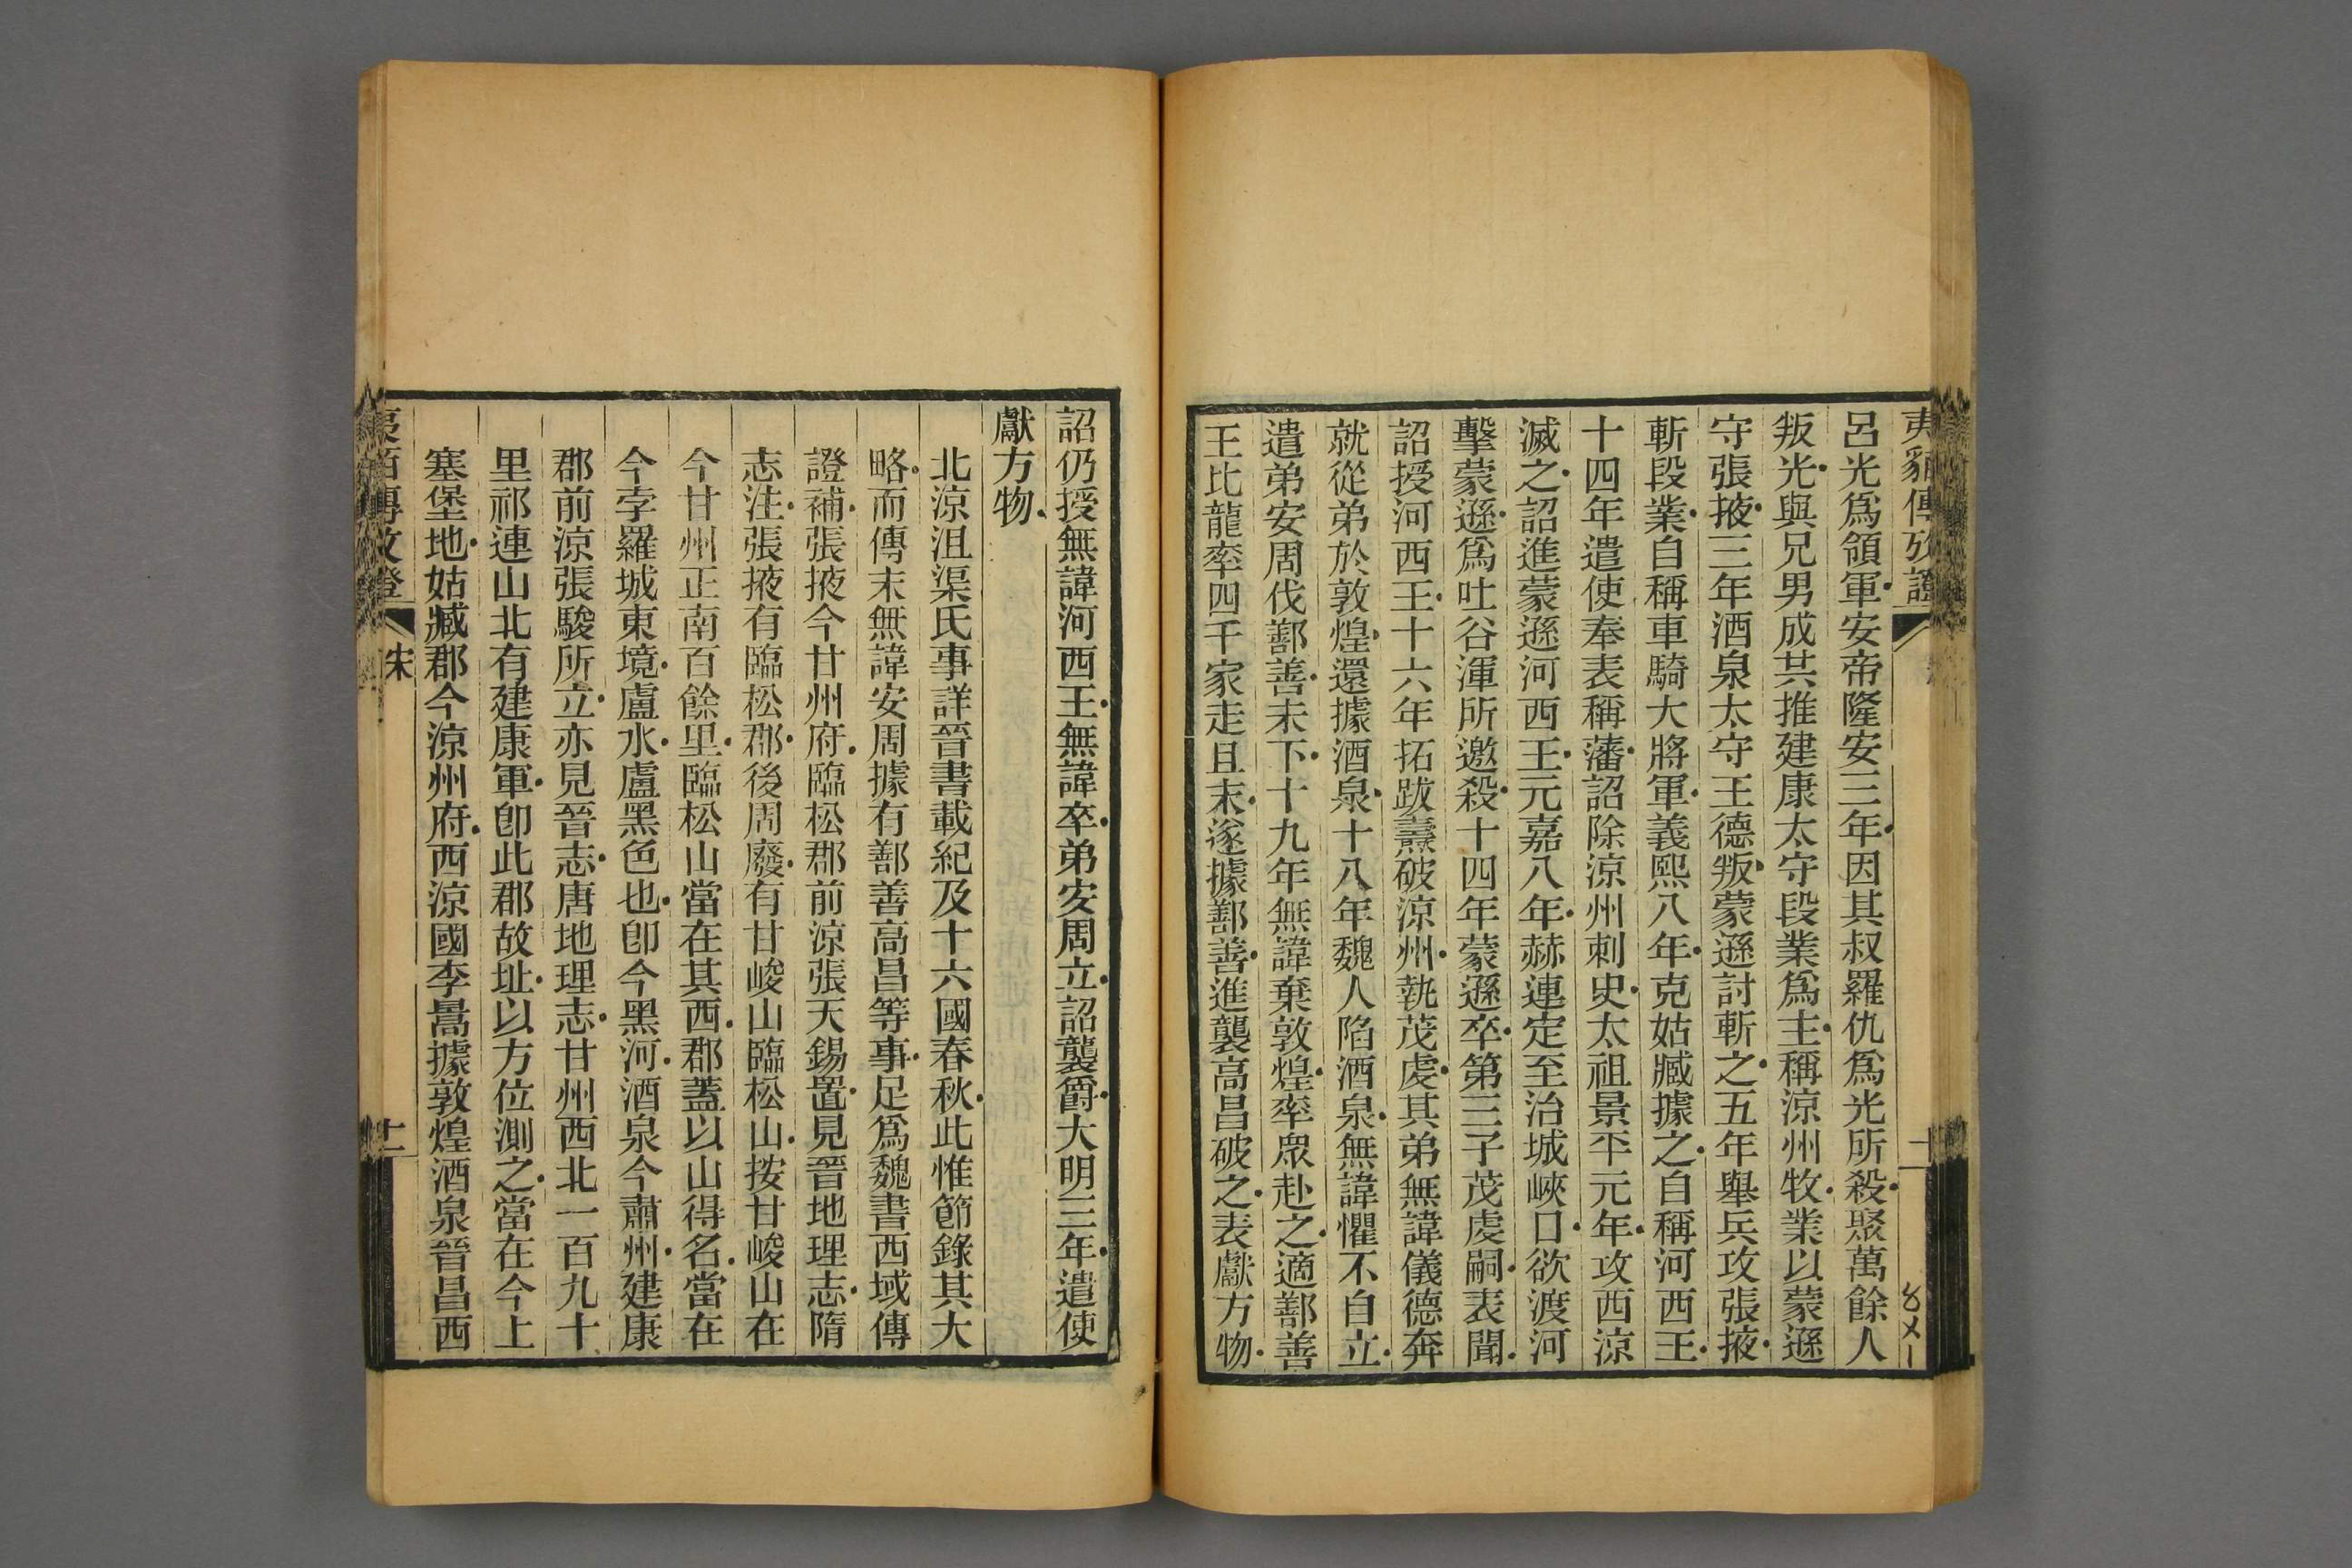 夷貊傳攷證
十
呂光爲領軍安帝隆安三年因其叔羅仇爲光所殺聚萬餘人
叛光與兄男成共推建康太守段業爲主稱涼州牧業以蒙遜
守張掖三年酒泉太守王德叛蒙遜討斬之五年舉兵攻張掖
斬段業自稱車騎大將軍義熙八年克姑臧據之自稱河西王
十四年遣使奉表稱藩詔除涼州刺史太祖景平元年攻西涼
滅之詔進蒙遜河西王元嘉八年赫連定至治城峽口欲渡河
擊蒙遜爲吐谷渾所邀殺十四年蒙遜卒第三子茂虔嗣表聞
詔授河西王十六年拓跋燾破涼州執茂虔其弟無諱儀德奔
就從弟於敦煌還據酒泉十八年魏人陷酒泉無諱懼不自立
遣弟安周伐鄯善未下十九年無諱棄敦煌率眾赴之適鄯善
王比龍率四千家走且末遂據鄯善進襲高昌破之表獻方物
詔仍授無諱河西王無諱卒弟安周立詔襲爵大明三年遣使
獻方物
北涼沮渠氏事詳晉書載紀及十六國春秋此惟節錄其大
略而傳末無諱安周據有鄯善高昌等事足爲魏書西域傳
證補張掖今甘州府臨松郡前涼張天錫置見晉地理志隋
志注張掖有臨松郡後周廢有甘峻山臨松山按甘峻山在
今甘州正南百餘里臨松山當在其西郡蓋以山得名當在
今孛羅城東境盧水盧黑色也卽今黑河酒泉今肅州建康
郡前涼張駿所立亦見晉志唐地理志甘州西北一百九十
里祁連山北有建康軍卽此郡故址以方位測之當在今上
塞堡地姑臧郡今涼州府西涼國李暠據敦煌酒泉晉昌西
夷貊傳攷證
宋
十一